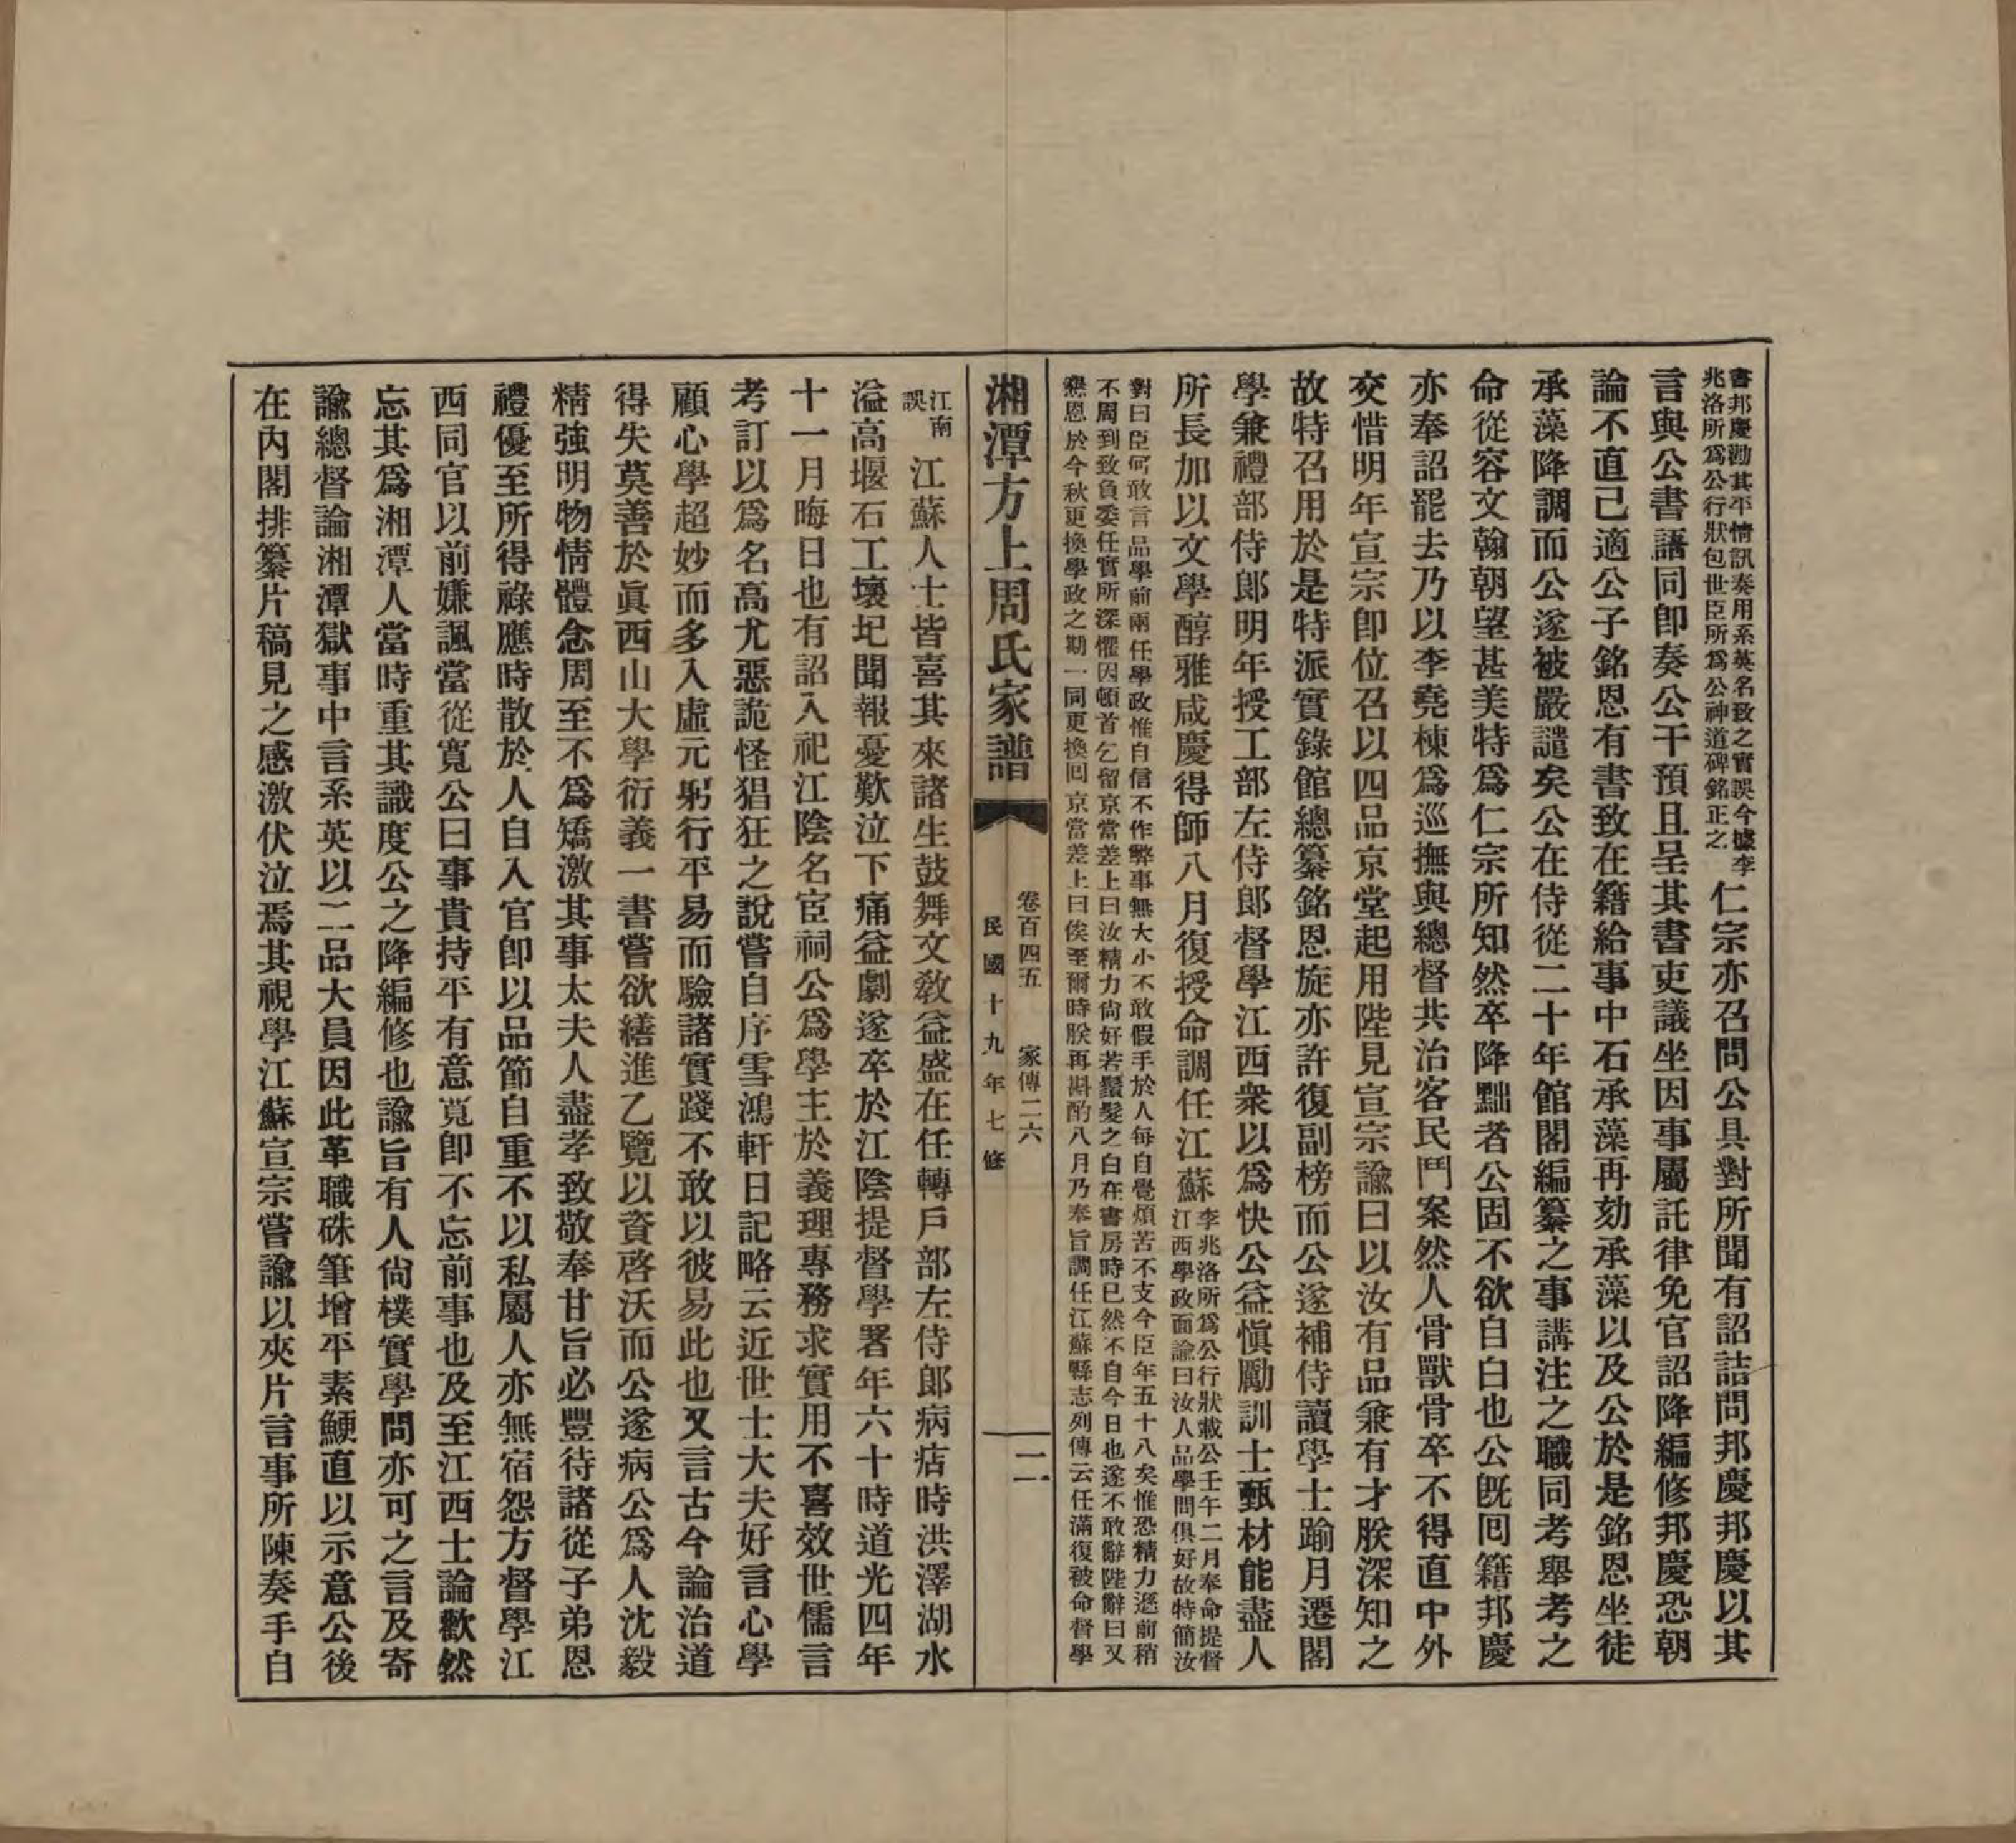 書邦慶勸其平情訊奏用系英名致之實誤今據李
兆洛所爲公行狀包世臣所爲公神道碑銘正之
仁宗亦召問公具對所聞有詔詰問邦慶邦慶以其
言與公書語同卽奏公干預且呈其書吏議坐因事屬託律免官詔降編修邦慶恐朝
論不直己適公子銘恩有書致在籍給事中石承藻再劾承藻以及公於是銘恩坐徒
承藻降調而公遂被嚴譴矣公在侍從二十年館閣編纂之事講注之職同考舉考之
命從容文翰朝望甚美特爲仁宗所知然卒降黜者公固不欲自白也公旣囘籍邦慶
亦奉詔罷去乃以李堯棟爲巡撫與總督共治客民鬥案然人骨獸骨卒不得直中外
交惜明年宣宗卽位召以四品京堂起用陛見宣宗諭曰以汝有品兼有才朕深知之
故特召用於是特派實錄館總纂銘恩旋亦許復副榜而公遂補侍讀學士踰月遷閣
學兼禮部侍郎明年授工部左侍郎督學江西衆以爲快公益愼勵訓士甄材能盡人
所長加以文學醇雅咸慶得師八月復授命調任江蘇
李兆洛所爲公行狀載公壬午二月奉命提督
江西學政面諭曰汝人品學問俱好故特簡汝
對曰臣何敢言品學前兩任學政惟自信不作弊事無大小不敢假手於人每自覺煩苦不支今臣年五十八矣惟恐精力遜前稍
不周到致負委任實所深懼因頓首乞留京當差上曰汝精力尙好若鬚髮之白在書房時已然不自今日也遂不敢辭陛辭曰又
懇恩於今秋更換學政之期一同更換囘京當差上曰俟至爾時朕再斟酌八月乃奉旨調任江蘇縣志列傳云任滿復被命督學
湘潭方上周氏家譜
卷百四五 家傳二六
民國十九年七修
二
江南
誤
江蘇人士皆喜其來諸生鼓舞文敎益盛在任轉戶部左侍郎病痁時洪澤湖水
溢高堰石工壞圮聞報憂歎泣下痛益劇遂卒於江陰提督學署年六十時道光四年
十一月晦日也有詔入祀江陰名宦祠公爲學主於義理專務求實用不喜效世儒言
考訂以爲名高尤惡詭怪猖狂之說嘗自序雪鴻軒日記略云近世士大夫好言心學
顧心學超妙而多入虛元躬行平易而驗諸實踐不敢以彼易此也又言古今論治道
得失莫善於眞西山大學衍義一書嘗欲繕進乙覽以資啓沃而公遂病公爲人沈毅
精強明物情體念周至不爲矯激其事太夫人盡孝致敬奉甘旨必豐待諸從子弟恩
禮優至所得祿應時散於人自入官卽以品節自重不以私屬人亦無宿怨方督學江
西同官以前嫌諷當從寬公曰事貴持平有意寬卽不忘前事也及至江西士論歡然
忘其爲湘潭人當時重其識度公之降編修也諭旨有人尙樸實學問亦可之言及寄
諭總督論湘潭獄事中言系英以二品大員因此革職硃筆增平素鯁直以示意公後
在內閣排纂片稿見之感激伏泣焉其視學江蘇宣宗嘗諭以夾片言事所陳奏手自